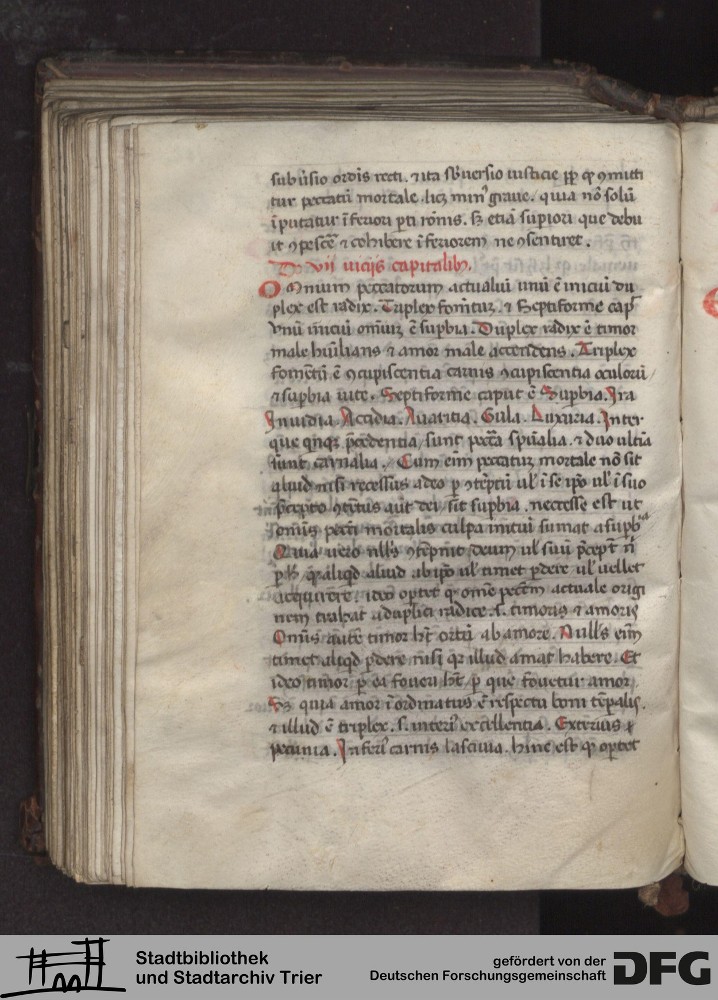 subu̔sio ordīs recti. ⁊ ita sb̔uersio iusticie pp̲ qd̛ ꝯmitti
tur peccatū mortale. licꝫ min᷒ graue. quia nō solū
īputatur īferiori ꝑti rōnis. sꝫ etiā supiori que debu
it ꝯpesce̅ ⁊ cohibere īferiorem ne ꝯsentiret.
D vij uicijs capitalib᷒.
Omnium peccatorum actualiū unū ē iniciū du
plex est radix. Triplex fomitū. ⁊ Septiforme cap̄
Vnū iniciū omniū ē supbia. Duplex radix ē timor
male hūilians ⁊ amor male accendens. Triplex
fomētū ē ꝯcupiscentia carnis ꝯcupiscentia oculorū
⁊ supbia uite. Septiforme caput ē Supbia. Ira
Inuidia. Accidia. Auaritia. Gula. Luxuria. Inter
que qinqꝫ p̄cedentia sunt pecca̅ spūalia. ⁊ duo ultīa
sunt carnalia. Cum eīm peccatū mortale nō sit
aliud nisi recessus a deo ꝑ ꝯtēptū ul̓ ī se ipo̅ ul̓ ī suo
p̄cepto ꝯtētus aut̄ dei sit supbia. necesse est ut
omīs pecca̅ti mortalis culpa initiū sumat a supb̄ia
Quia uero null᷒ ꝯtēpnit deum ul̓ suū p̄cept̄ n̄
ꝓ h̓ qr̄ aliqd aliud ab ipo̅ ul̓ timet ꝑdere ul̓ uellet
acquirere. ideo oꝑtet qd̛ omē pecca̅tm actuale origi
nem trahat a duplici radice. s. timoris ⁊ amoris
Omīs aute̅ timor h̄t ortū ab amore. Null᷒ eīm
timet aliqd ꝑdere nisi qr̄ illud amat habere. Et
ideo timor ꝑ ea foueri h̄t ꝑ que fouetur amor
Sꝫ quia amor īordinatus ē respectu boni tēpalis.
⁊ illud ē triplex. s. interi᷒ excellentia. Exterius
pecunia. Inferi᷒ carnis lasciuia. hinc est qd̛ oꝑtet
Stadtbibliothek
und Stadtarchiv Trier
gefördert von der
Deutschen Forschungsgemeinschaft
DFG